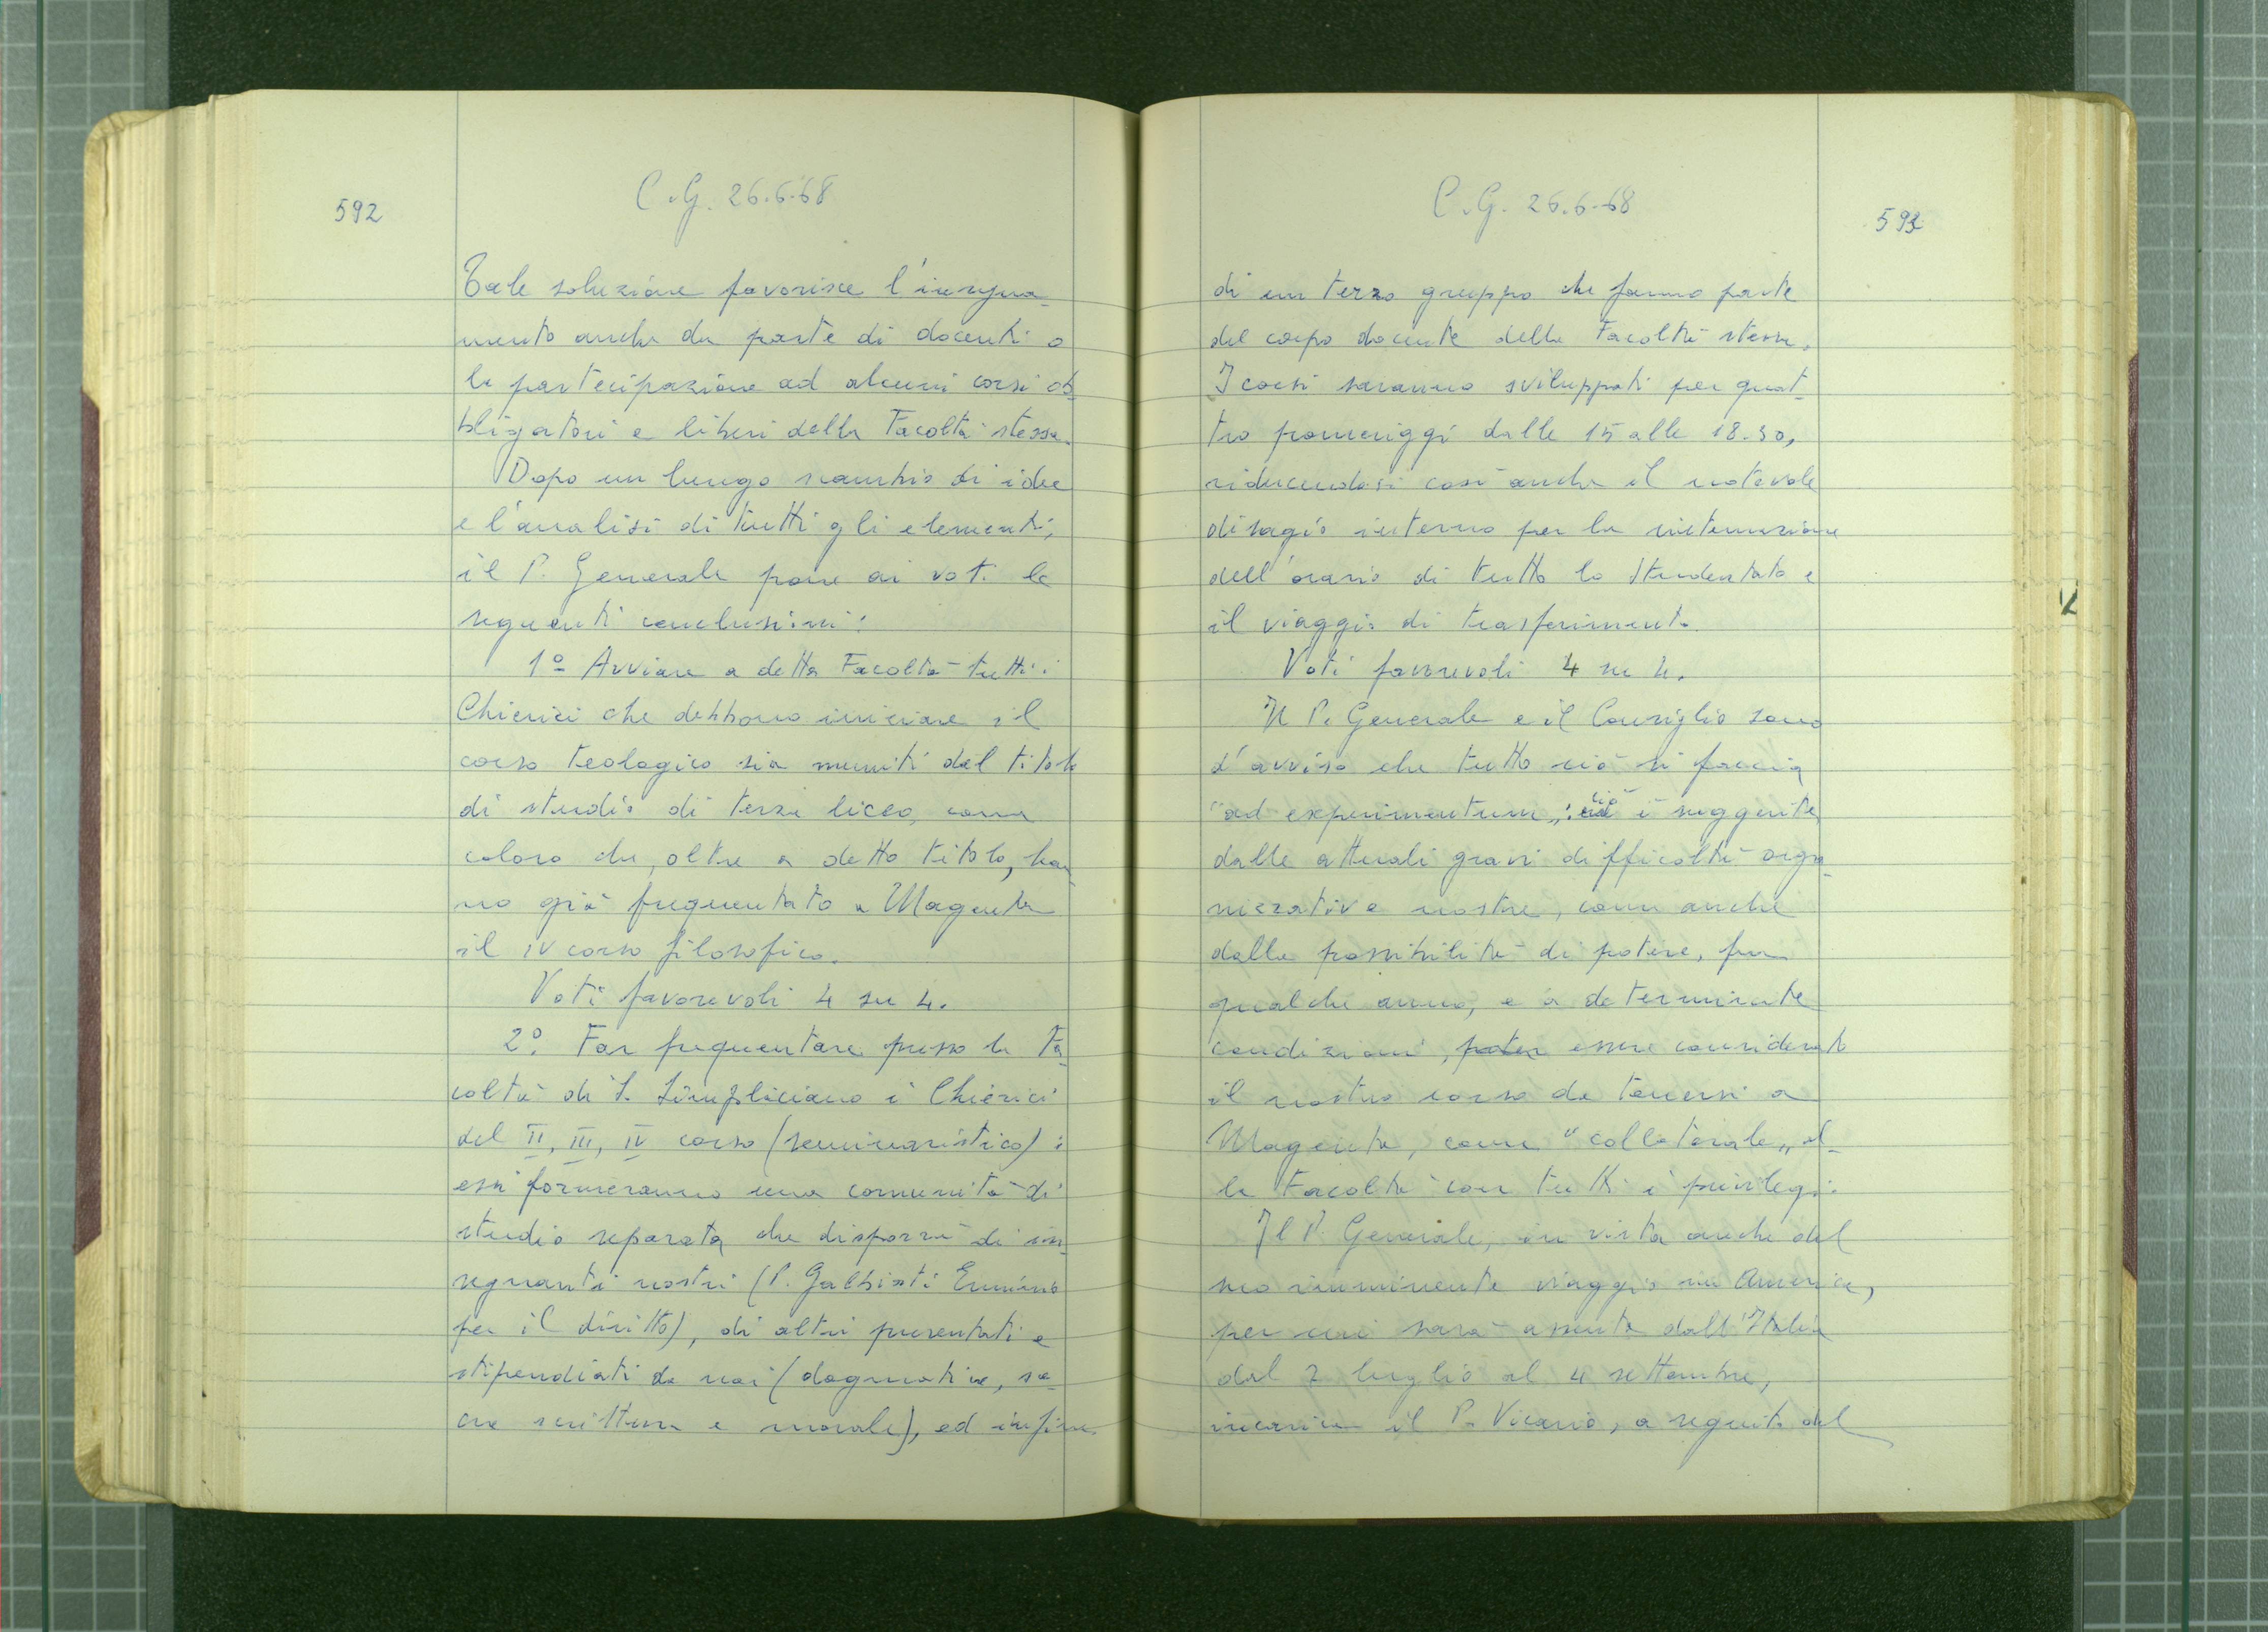 592
C.G. 26.6.68
Tale soluzione favorisce l'insegna-
mento anche da parte di docenti o
la partecipazione ad alcuni corsi ob-
bligatori e liberi della Facoltà stessa.
Dopo un lungo scambio di idee
e l'analisi di tutti gli elementi,
il P. Generale pone ai voti le
seguenti conclusioni:
1º Avviare a detta Facoltà tutti i
Chierici che debbono iniziare il
corso teologico sia muniti del titolo
di studio di terza liceo, come
coloro che, oltre a detto titolo, han-
no già frequentato a Magenta
il IV corso filosofico.
Voti favorevoli 4 su 4.
2º. Far frequentare presso la Fa-
coltà di S. Simpliciano i Chierici
del II, III, IV corso (seminaristico):
essi formeranno una comunità di
studio separata che disporrà di in-
segnanti nostri (P. Galbiati Erminio
per il diritto), di altri presentati e
stipendiati da noi (dogmatica, sa-
cra scrittura e morale), ed infine
C.G. 26.6.68
593
di un terzo gruppo che fanno parte
del corpo docente della Facoltà stessa.
I corsi saranno sviluppati per quat-
tro pomeriggi dalle 15 alle 18.30,
riducendosi così anche il notevole
disagio interno per la sistemazione
dell'orario di tutto lo Studentato e
il viaggio di trasferimento.
Voti favorevoli 4 su 4.
Il P. Generale e il Consiglio sono
d'avviso che tutto ciò si faccia
"ad experimentum„: ciò è suggerito
dalle attuali gravi difficoltà orga-
nizzative nostre, come anche
dalla possibilità di potere, fra
qualche anno, e a determinate
condizioni, poter essere considerato
il nostro corso da tenersi a
Magenta, come "collaterale„ al-
la Facoltà con tutti i privilegi.
Il P. Generale, in vista anche del
suo imminente viaggio in America,
per cui sarà assente dall'Italia
dal 2 luglio al 4 settembre,
incarica il P. Vicario, a seguito del